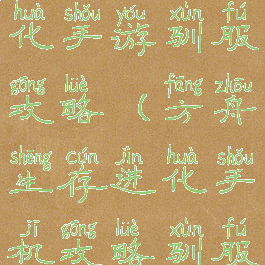 huà shǒu yóu xùn fú
化手游驯服
gōng lüè fāng zhōu
攻略(方舟
shēng cún jìn huà shǒu
生存进化手
jī gōng lüè xùn fú
机攻略驯服